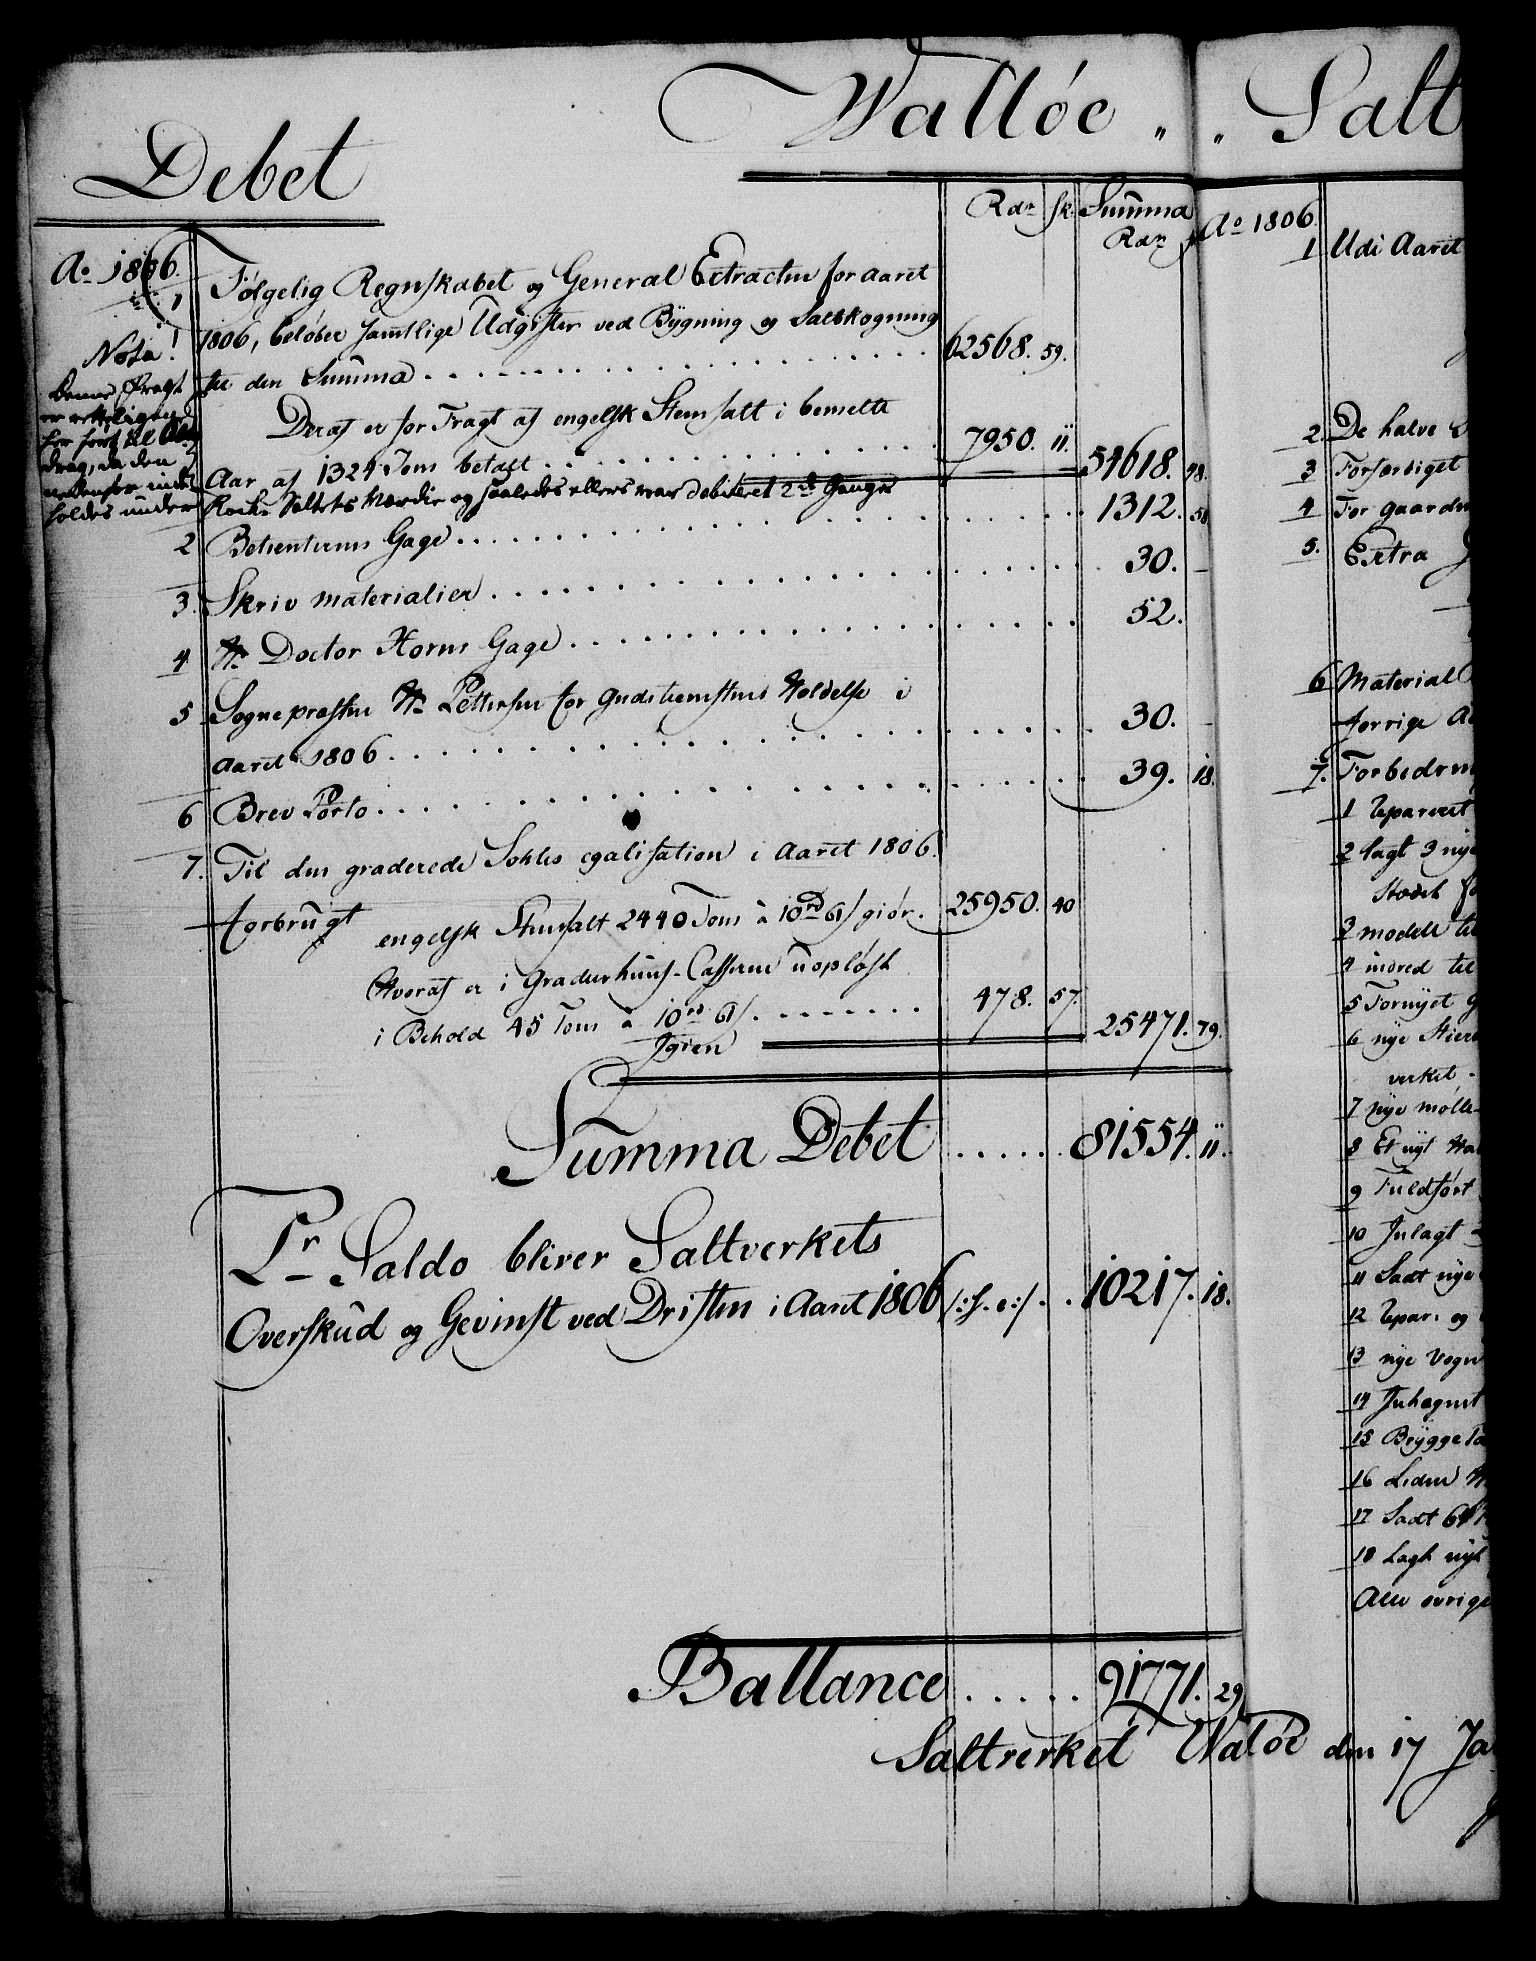 Walløe „ „ Salt
Debet
Rdr sk. Summa
Rdr
Ao 1806.
1 Følgelig Regnskabet og General Extracten for aaret
1806, beløber samtlige Udgifter ved Bygning og Saltkogning
til den Summa . . . 62568. 59.
Deraf er for Fragt af engelsk Steensalt i bemelte
Aar af 1324 Tons betalt . . . 7950. 11. 54618. 48.
Nota!
Denne Fragt
er
her ført til
drag, da den
nedenfor inde
holdes under
Rock Saltets Værdie og saaledes ellers var debiteret 2de Gange
2 Betienternes Gage . . . 1312. 58
3. Skriv materialier . . . 30. –
4 Hr Doctor Horns Gage . . . 52.
5 Sognepræsten Hr Pettersen for Gudstienestens Holdelse i
Aaret 1806 . . . 30. –
6 Brev Porto . . . 39. 18.
7. Til den graderede Sohles egalisation i Aaret 1806.
forbrugt
engelsk Steensalt 2440 Tons à 10rd 61s giør. 25950. 40
Hvoraf er i Graderhuus-Casserne uopløst
i Behold 45 Tons à 10rd 61s . . . 478. 57.
Igien 25471. 79.
Summa Debet . . . 81554. 11.
Pr Saldo bliver Saltverkets
Overskud og Gevinst ved Driften i Aaret 1806 /:S. e:/ . . 10217. 18.
Ballance . . . 91771. 29
Saltverket Waløe den 17 Ja
Ao 1806.
1 Udi Aaret
2 De halve
3 Forfærdiget
4 For gaarden
5. Extra
6 Material
forrige A
7. Forbedring
1 Repareret
2 lagt 3 nye
Stødet
3 modell til
4 indred til
5 Fornyet
6 nye
verket
7 nye mølle
8 Et nyt
9 Fuldført
10 Inlagt
11 Sadt nye
12 Repar: og
13 nye Vogn
14 Inhegnet
15 Brygge
16
17 Sadt 61
18 Lagt nyt
Alle øvrige